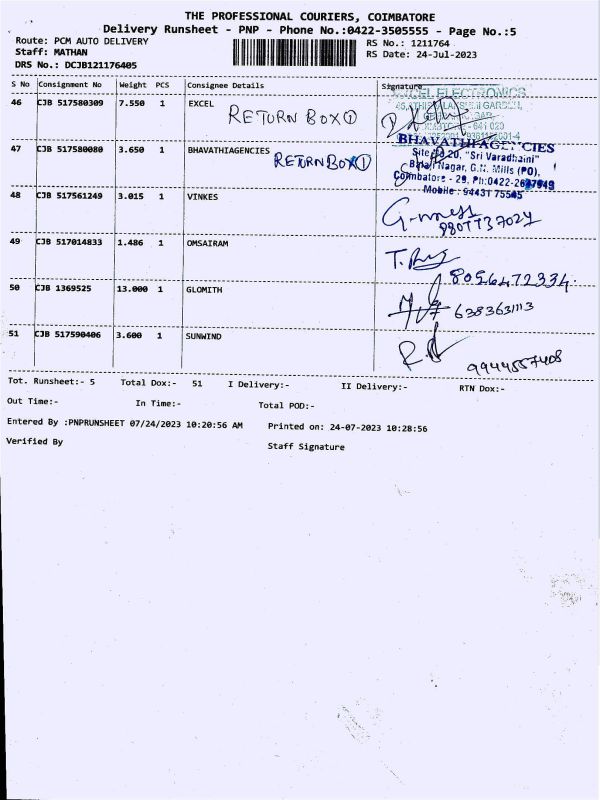 THE PROFESSIONAL COURIERS, COIMBATORE
Delivery Runsheet - PNP - Phone No.:0422-3505555 - Page No.:5
Route: PCM AUTO DELIVERY
RS No.: 1211764
Staff: MATHAN
RS Date: 24-Jul-2023
DRS No.: DCJB121176405
S No Consignment No Weight PCS Consignee Details Signature
46 CJB 517580309 7.550 1 EXCEL
RETURN BOX ①
EXCEL ELECTRONICS
47 CJB 517580080 3.650 1 BHAVATHIAGENCIES
RETURN BOX ①
BHAVATHI AGENCIES
Site No 20, "Sri Varadhaini"
Balaji Nagar, G.N. Mills (PO),
Coimbatore - 29, Ph:0422-2647949
Mobile : 94431 75545
48 CJB 517561249 3.015 1 VINKES
9807737024
49 CJB 517014833 1.486 1 OMSAIRAM
8056472334
50 CJB 1369525 13.000 1 GLOMITH
6383631113
51 CJB 517590406 3.600 1 SUNWIND
9944557408
Tot. Runsheet:- 5 Total Dox:- 51 I Delivery:- II Delivery:- RTN Dox:-
Out Time:- In Time:- Total POD:-
Entered By :PNPRUNSHEET 07/24/2023 10:20:56 AM Printed on: 24-07-2023 10:28:56
Verified By Staff Signature